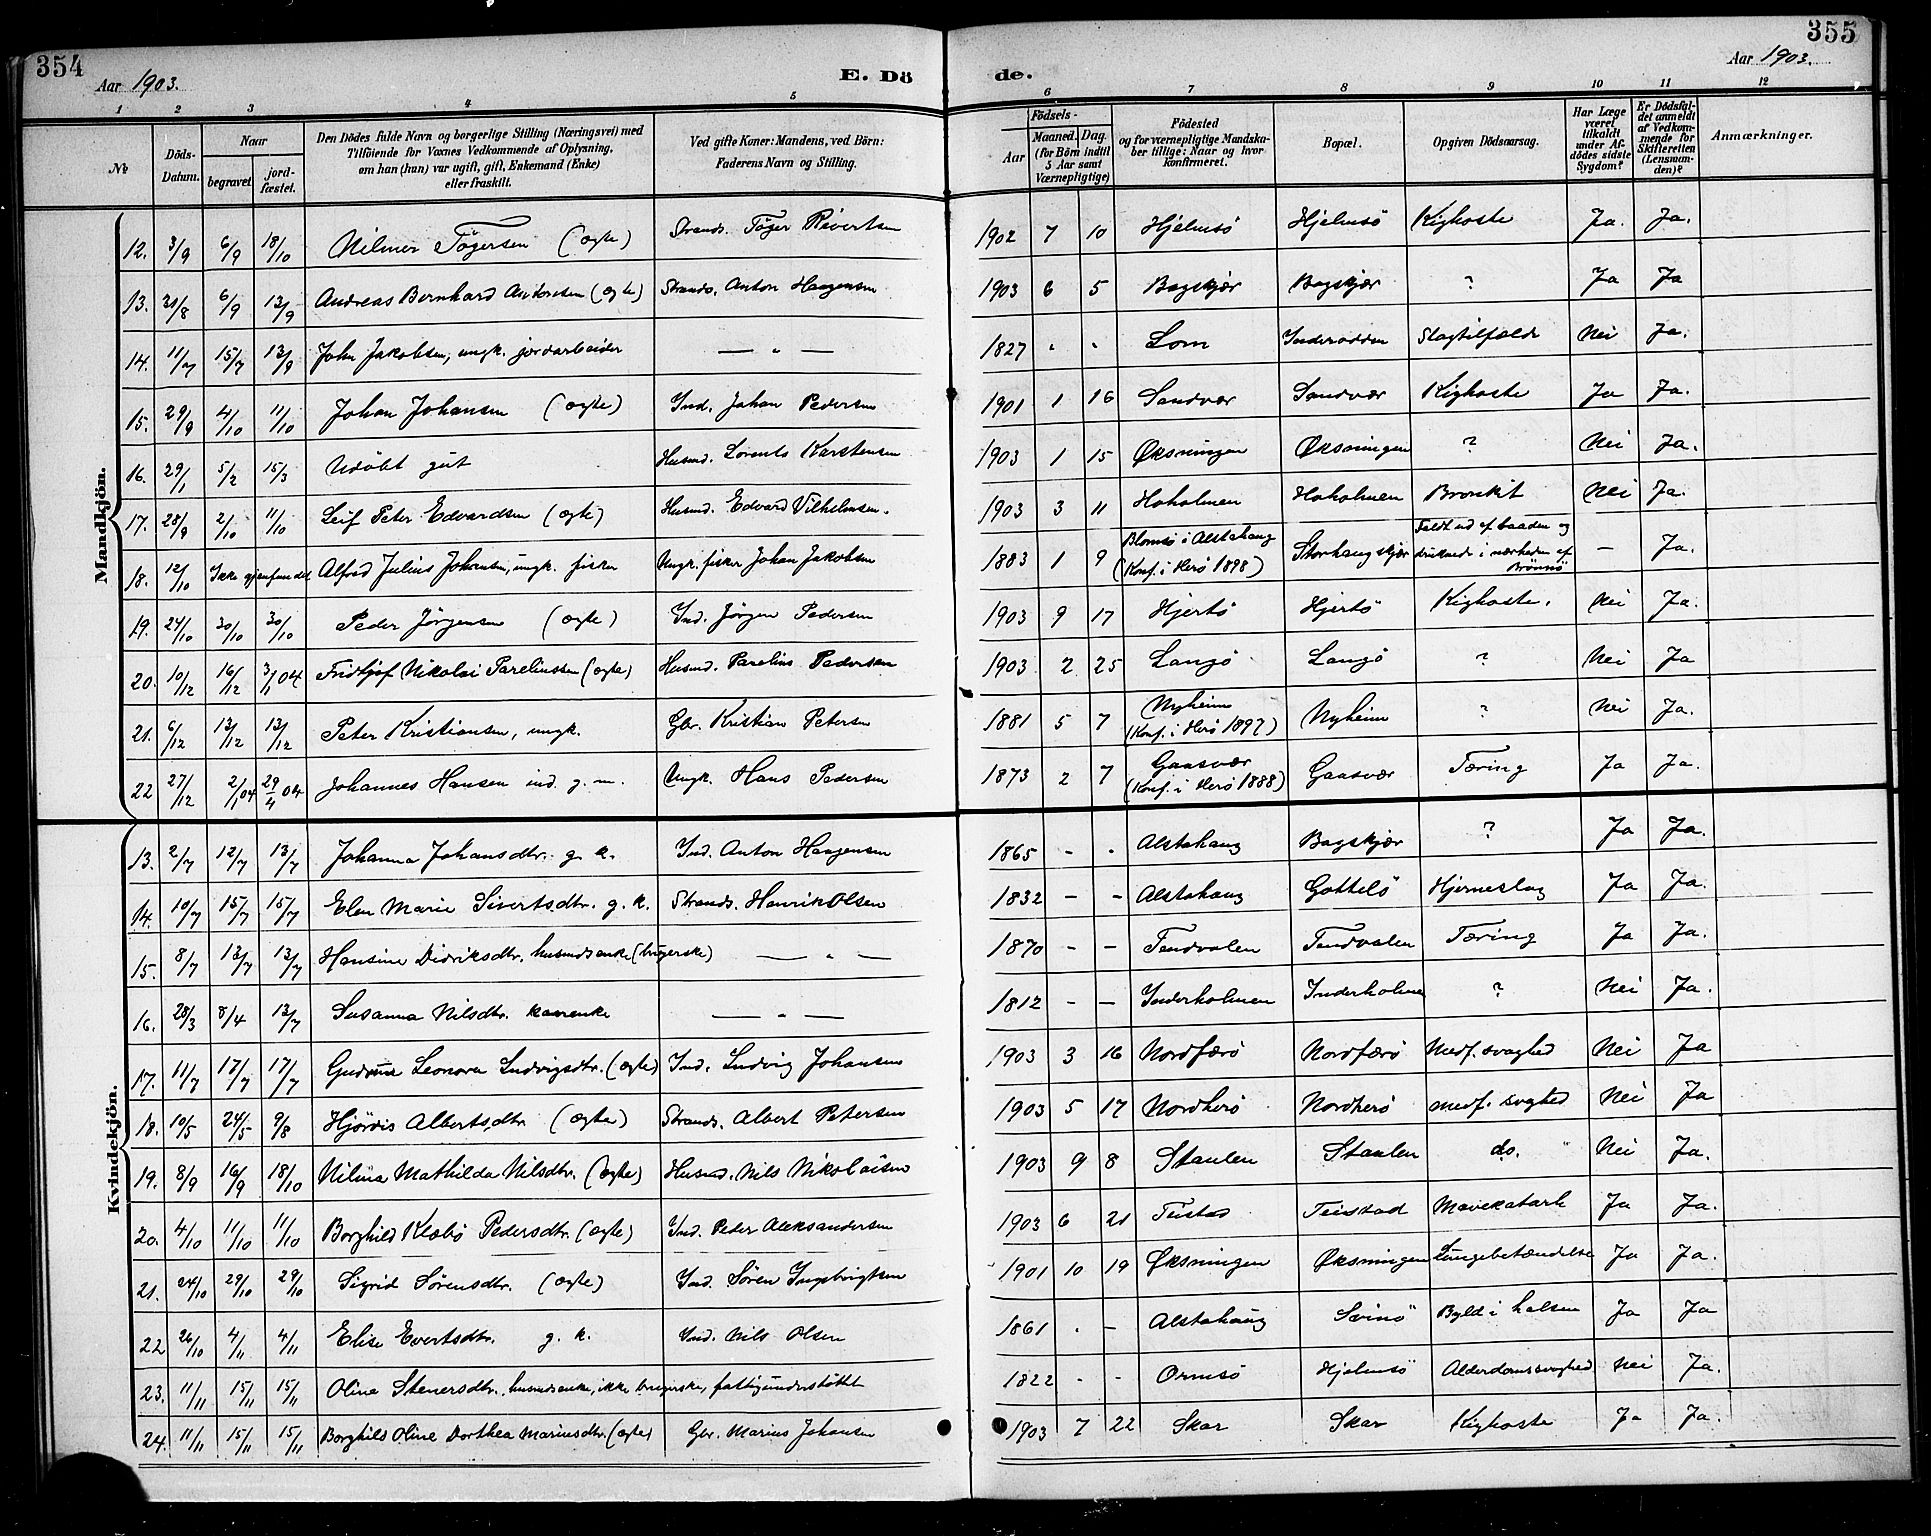 354
355
Aar 1903.
E. Dö
de.
Aar 1903.
1 2 3 4 5 6 7 8 9 10 11 12
No
Döds-Datum.
Naar
begravet
jordfæstet.
Den Dödes fulde Navn og borgerlige Stilling (Næringsvei) med
Tilföiende for Voxnes Vedkommende af Oplysning,
om han (hun) var ugift, gift, Enkemand (Enke)
eller fraskilt.
Ved gifte Koner: Mandens, ved Börn:
Faderens Navn og Stilling.
Födsels-
Aar
Maaned. Dag.
(for Börn indtil
5 Aar samt
Værnepligtige)
Födested
og for værnepligtige Mandskaber tillige: Naar og hvor
konfirmeret.
Bopæl.
Opgiven Dödsaarsag.
Har Læge
været
tilkaldt
under Afdödes sidste
Sygdom?
Er Dödsfaldet anmeldt
af Vedkommende for
Skifteretten
(Lensmanden)?
Anmærkninger.
Mandkjön.
12. 3/9 6/9 18/10 Hilmer Tögersen (ægte) Strands. Töger Sivertsen 1902 7 10 Hjelmsö Hjelmsö Kighoste Ja. Ja.
13. 31/8 6/9 13/9 Andreas Bernhard Antonsen (ægte) Strands. Anton Haagensen 1903 6 5 Bagskjær Bagskjær ? Ja Ja
14. 11/7 15/7 13/9 John Jakobsen, ungk. jordarbeider — " — 1827 " " Lom Inderodden Slagtilfælde Nei Ja.
15. 29/9 4/10 11/10 Johan Johansen (ægte) Ind. Johan Pedersen 1901 1 16 Sandvær Sandvær Kighoste Ja Ja.
16. 29/1 5/2 15/3 Udöbt gut Husmd. Lorents Karstensen 1903 1 15 Øksningen Øksningen ? Nei Ja.
17. 28/9 2/10 11/10 Leif Peter Edvardsen (ægte) Husmd. Edvard Vilhelmsen. 1903 3 11 Hoholmen Hoholmen Bronkit Nei Ja.
18. 12/10 Ikke gjenfundet Alfred Julius Johansen, ungk. fisker Ungk. fisker Johan Jakobsen 1883 1 9 Blomsö i Alstahaug (Konf. i Herö 1898) Storhaugskjær Faldt ud af baaden og druknede i nærheden af Brönnö — Ja.
19. 24/10 30/10 30/10 Peder Jörgensen (ægte) Ind. Jörgen Pedersen 1903 9 17 Hjertö Hjertö Kighoste. Nei Ja.
20. 10/12 16/12 3/1 04 Fridtjof Nikolai Pareliussen (ægte) Husmd. Parelius Pedersen 1903 2 25 Langö Langö ? Nei Ja
21. 6/12 13/12 13/12 Peter Kristiansen, ungk. Gbr. Kristian Petersen 1881 5 7 Nyheim (Konf. i Herö 1897) Nyheim ? Nei Ja.
22 27/12 2/1 04 29/4 04 Johannes Hansen ind. g. m. Ungk. Hans Pedersen 1873 2 7 Gaasvær (Konf. i Herö 1888) Gaasvær Tæring Ja Ja.
Kvindekjön.
13. 2/7 12/7 13/7 Johanna Johansdtr. g. k. Ind. Anton Haagensen 1865 - - Alstahaug Bagskjær ? Ja Ja.
14. 10/7 15/7 15/7 Elen Marie Sivertsdtr. g. k. Strands. Henrik Olsen 1832 - - Alstahaug Gottelö Hjerneslag Ja Ja.
15. 8/7 13/7 13/7 Hansine Didriksdtr. husmdsenke (brugerske) — " — 1870 - - Tendvalen Tendvalen Tæring Ja Ja.
16. 28/3 8/4 13/7 Susanna Nilsdtr. kaarenke — " — 1812 - - Inderholmen Inderholmen ? Nei Ja.
17. 11/7 17/7 17/7 Gudrun Leonora Ludvigsdtr. (ægte) Ind. Ludvig Johansen 1903 3 16 Nordfærö Nordfærö Medf. svaghed Nei Ja
18. 10/5 24/5 9/8 Hjördis Albertsdtr (ægte) Strands. Albert Petersen 1903 5 17 Nordherö Nordherö medf. svaghed Nei Ja
19. 8/9 16/9 18/10 Nilina Mathilda Nilsdtr. (ægte) Husmd. Nils Nikolaisen 1903 9 8 Staulen Staulen do. " Nei Ja.
20. 4/10 11/10 11/10 Borghild Klæbö Pedersdtr. (ægte) Ind. Peder Aleksandersen 1903 6 21 Teistad Teistad Mavekatarh Ja Ja.
21. 24/10 29/10 29/10 Sigrid Sörensdtr. (ægte) Ind. Sören Ingebrigtsen 1901 10 19 Øksningen Øksningen Lungebetændelse Ja Ja.
22 26/10 4/11 4/11 Elise Evertsdtr. g. k. Ind. Nils Olsen 1861 - - Alstahaug Svinö Byld i halsen Ja Ja
23. 11/11 15/11 15/11 Oline Stenersdtr. husmdsenke, ikke brugerske, fattigunderstöttet 1822 - - Ormsö Hjelmsö Alderdomssvaghed Nei Ja.
24. 11/11 15/11 15/11 Borghild Oline Dorthea Mariusdtr. (ægte) Gbr. Marius Johansen 1903 7 22 Skar Skar Kighoste Ja Ja.